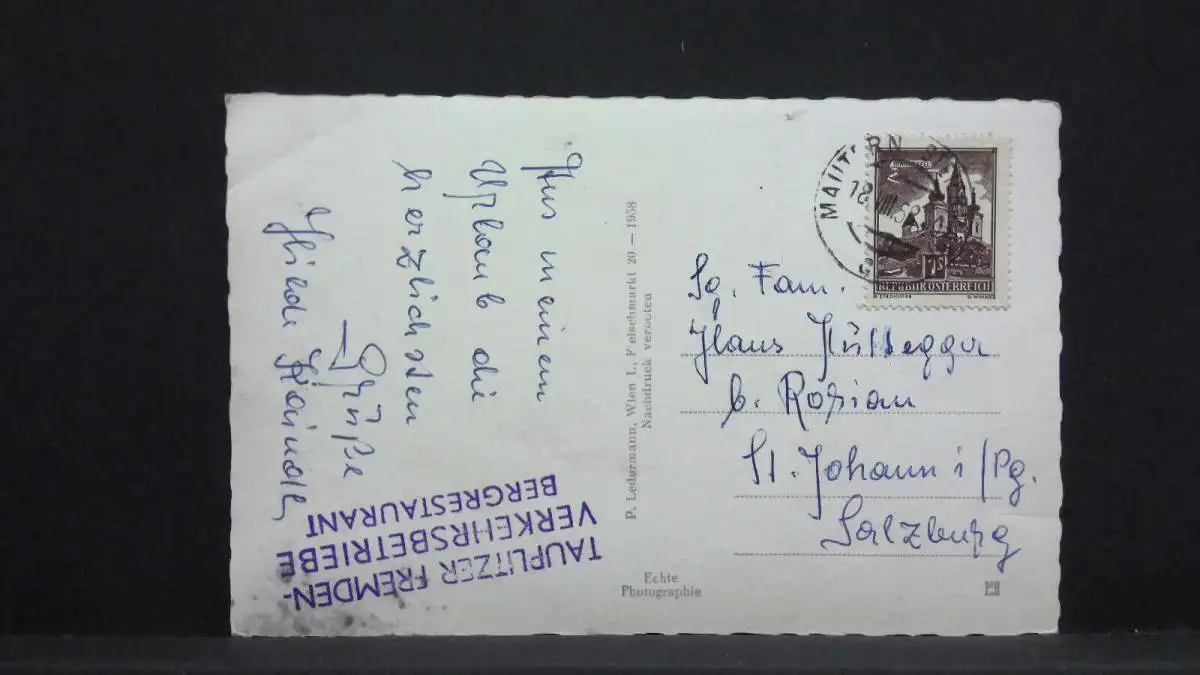 Aus meinem
Urlaub die
herzlichsten
Grüße
Hilde
TAUPLITZER FREMDEN-
VERKEHRSBETRIEBE
BERGRESTAURANT
P. Ledermann, Wien I., Fleischmarkt 20 — 1958
Nachdruck verboten
Echte
Photographie
MAUTERN
18. VIII 58
1S
REPUBLIK ÖSTERREICH
Fam.
Hans Hüttegger
b.
St. Johann i/Pg.
Salzburg